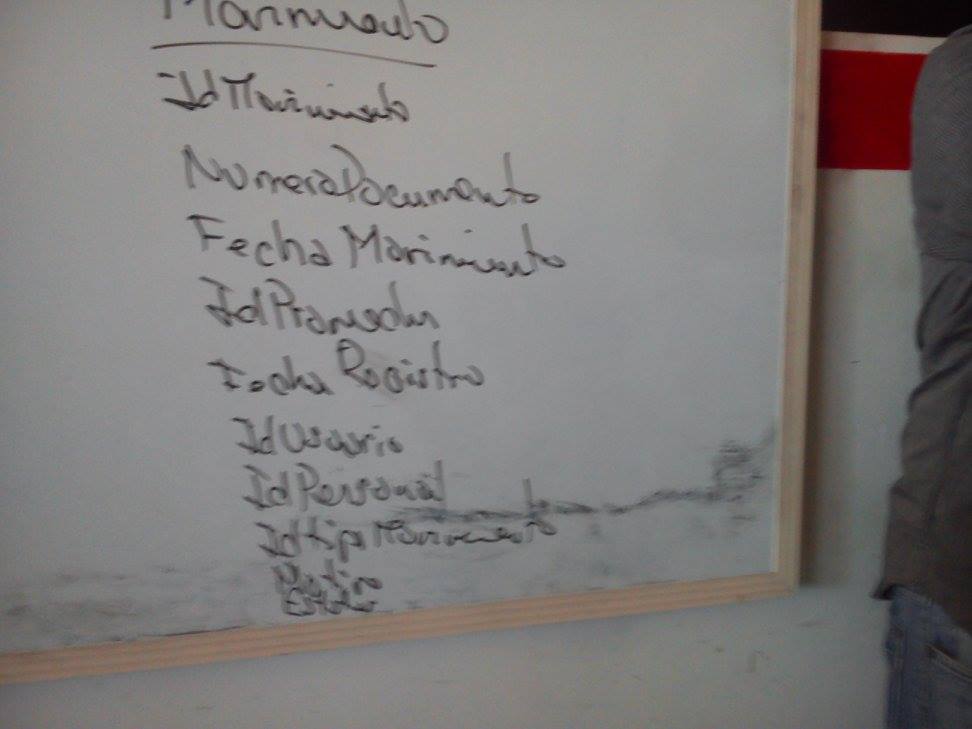 Movimiento
IdMovimiento
NumeroDocumento
Fecha Movimiento
IdProveedor
Fecha Registro
IdUsuario
IdPersonal
IdtipoMovimiento
Motivo
Estado